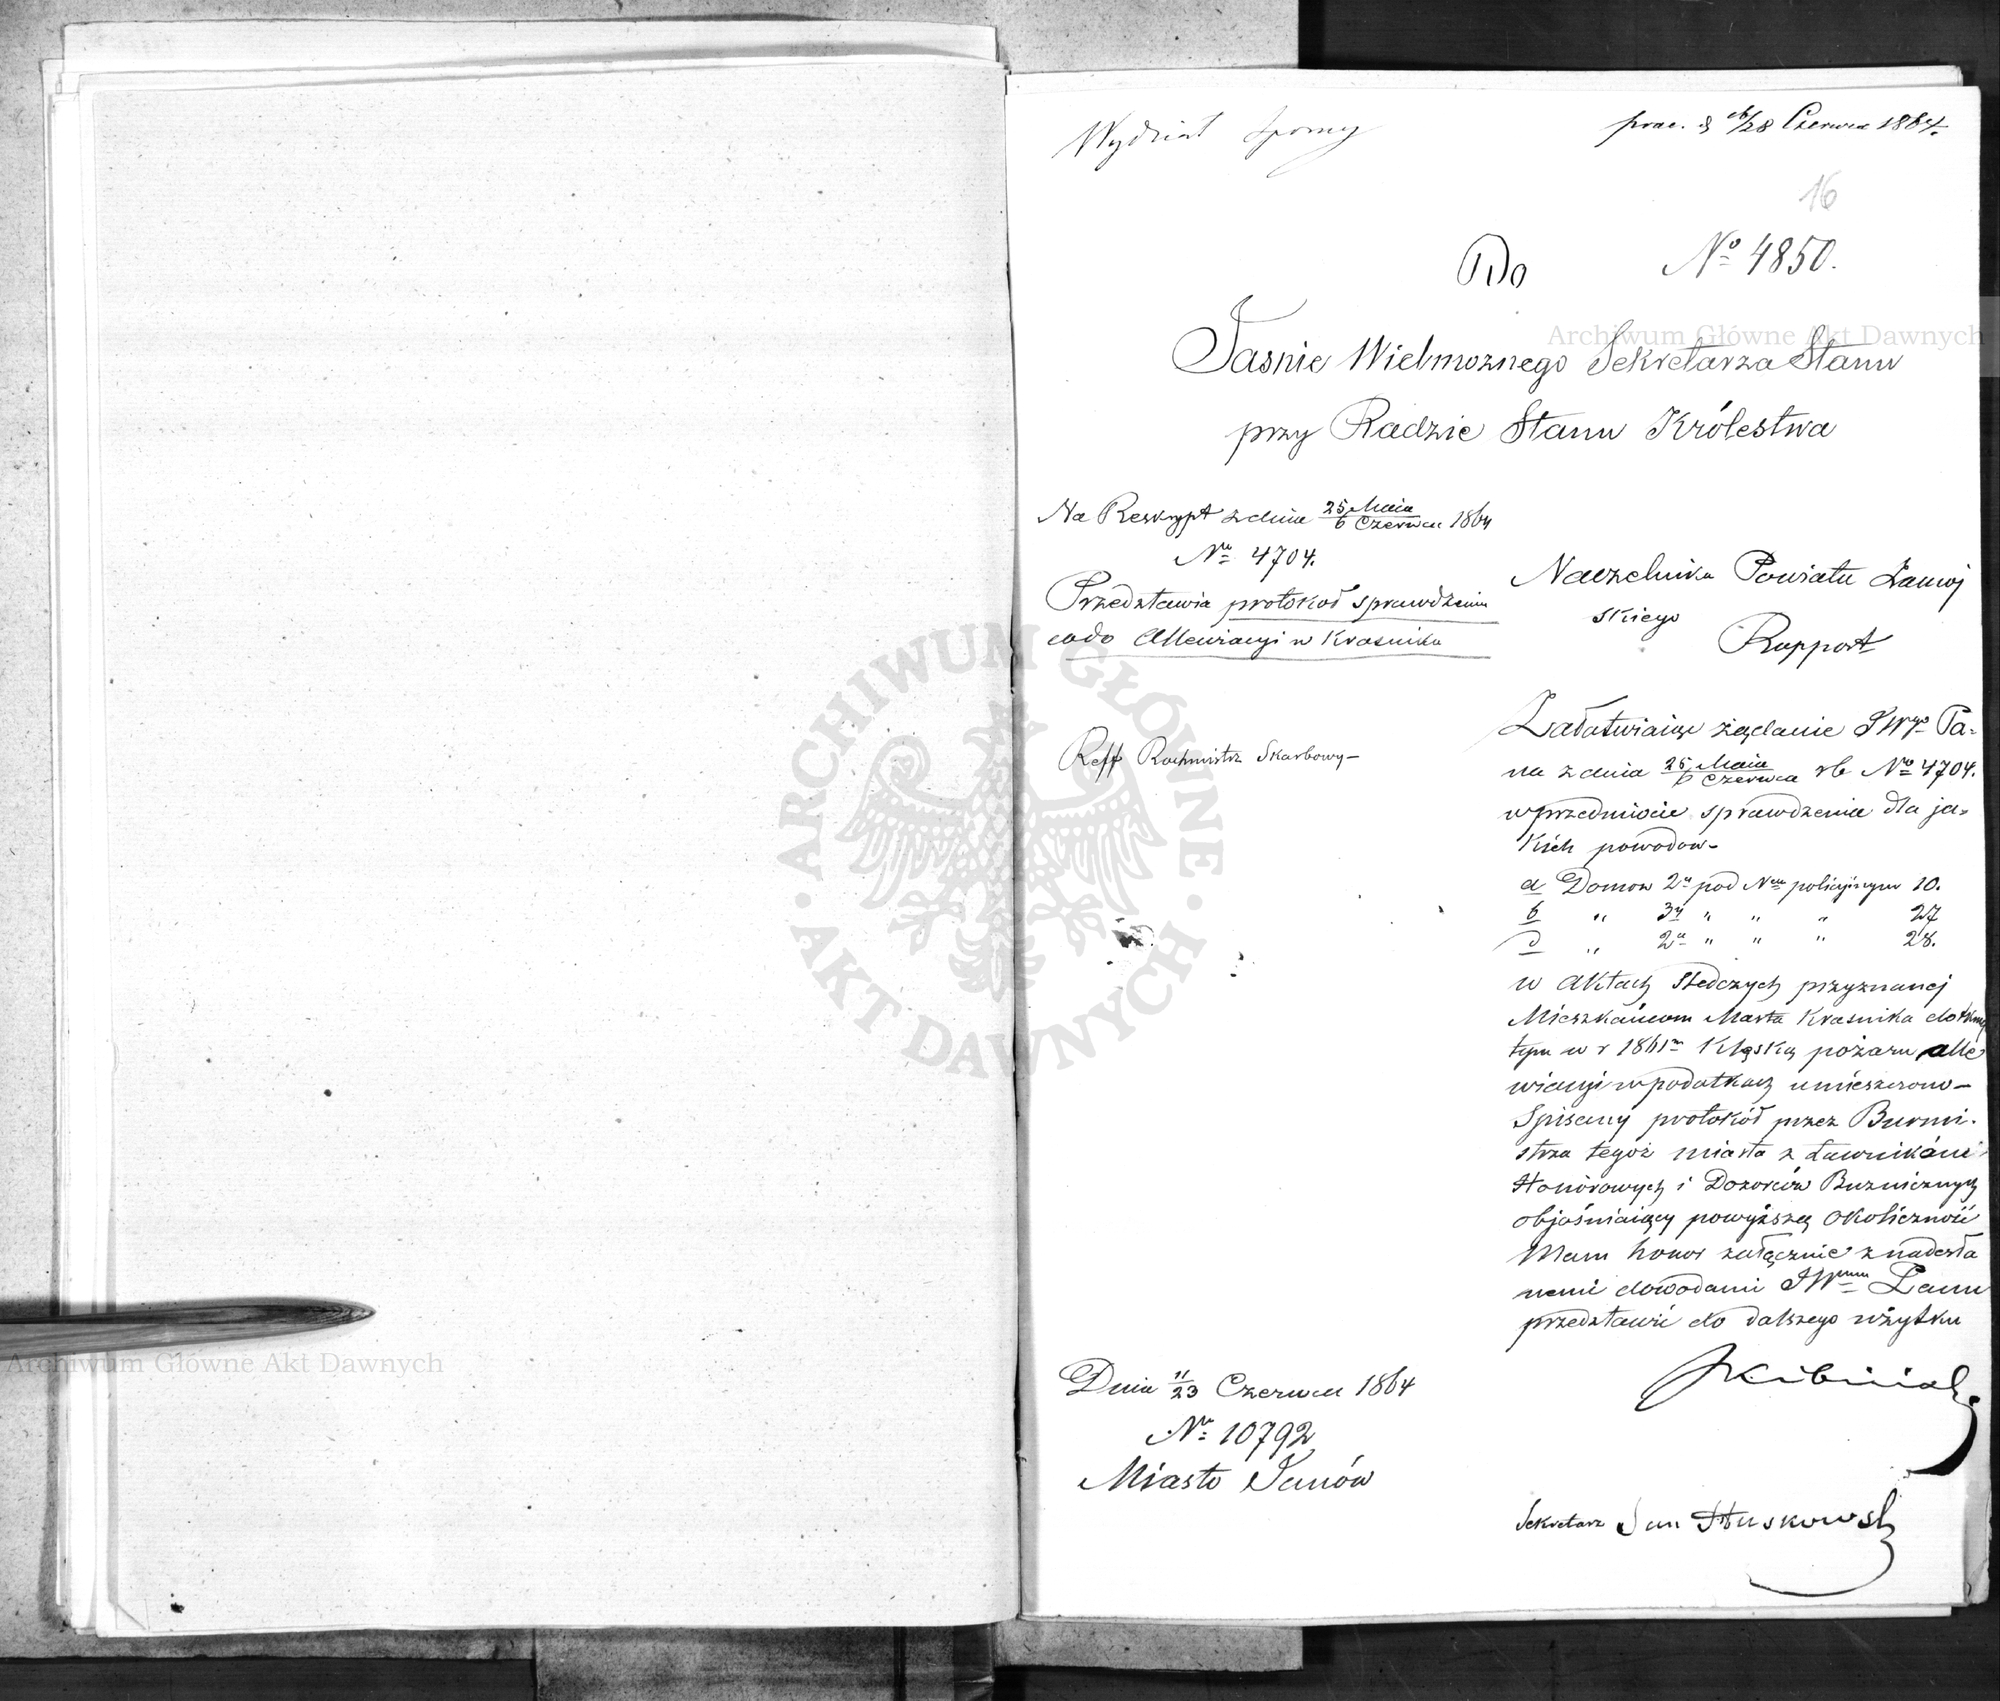 Wydział Sporny
prac. d 16/28 Czerwca 1864.
16
Do
No 4850.
Jasnie Wielmoznego Sekretarza Stanu
przy Radzie Stanu Królestwa
Na Reskrypt z dnia 25 Maia / 6 Czerwca 1864
No 4704.
Przedstawia protokoł sprawdzenia
co do Allewiacyi w Krasniku
Reff Rachmistrz Skarbowy
Naczelnika Powiatu Zamoj
skiego
Rapport
Załatwiaiąc żądanie JWgo Pa-
na z dnia 25 Maia / 6 Czerwca rb No 4704.
w przedmiocie sprawdzenia dla ja-
kich powodow
a Domow 2u pod Nem policyjnym 10.
b " 3y " " " 27
" 2u " " " 28.
w aktach śledczych przyznanej
Mieszkańcom Miasta Krasnika dotknię
tym w r 1861m klęską pożaru alle
wiacyi w podatkach umieszczono
Spisany protokół przez Burmi-
strza tegoż miasta z Ławnikami
Honorowych i Dozorców Buznicznych
objaśniaiący powyższą okoliczność
Mam honor załącznie z nadesła
nemi dowodami JWmu Panu
przedstawić do dalszego użytku
Dnia 11/23 Czerwca 1864
No 10792
Miasto Janów
Sekretarz Jan
Archiwum Główne Akt Dawnych
Archiwum Główne Akt Dawnych
ARCHIWUM GŁÓWNE AKT DAWNYCH